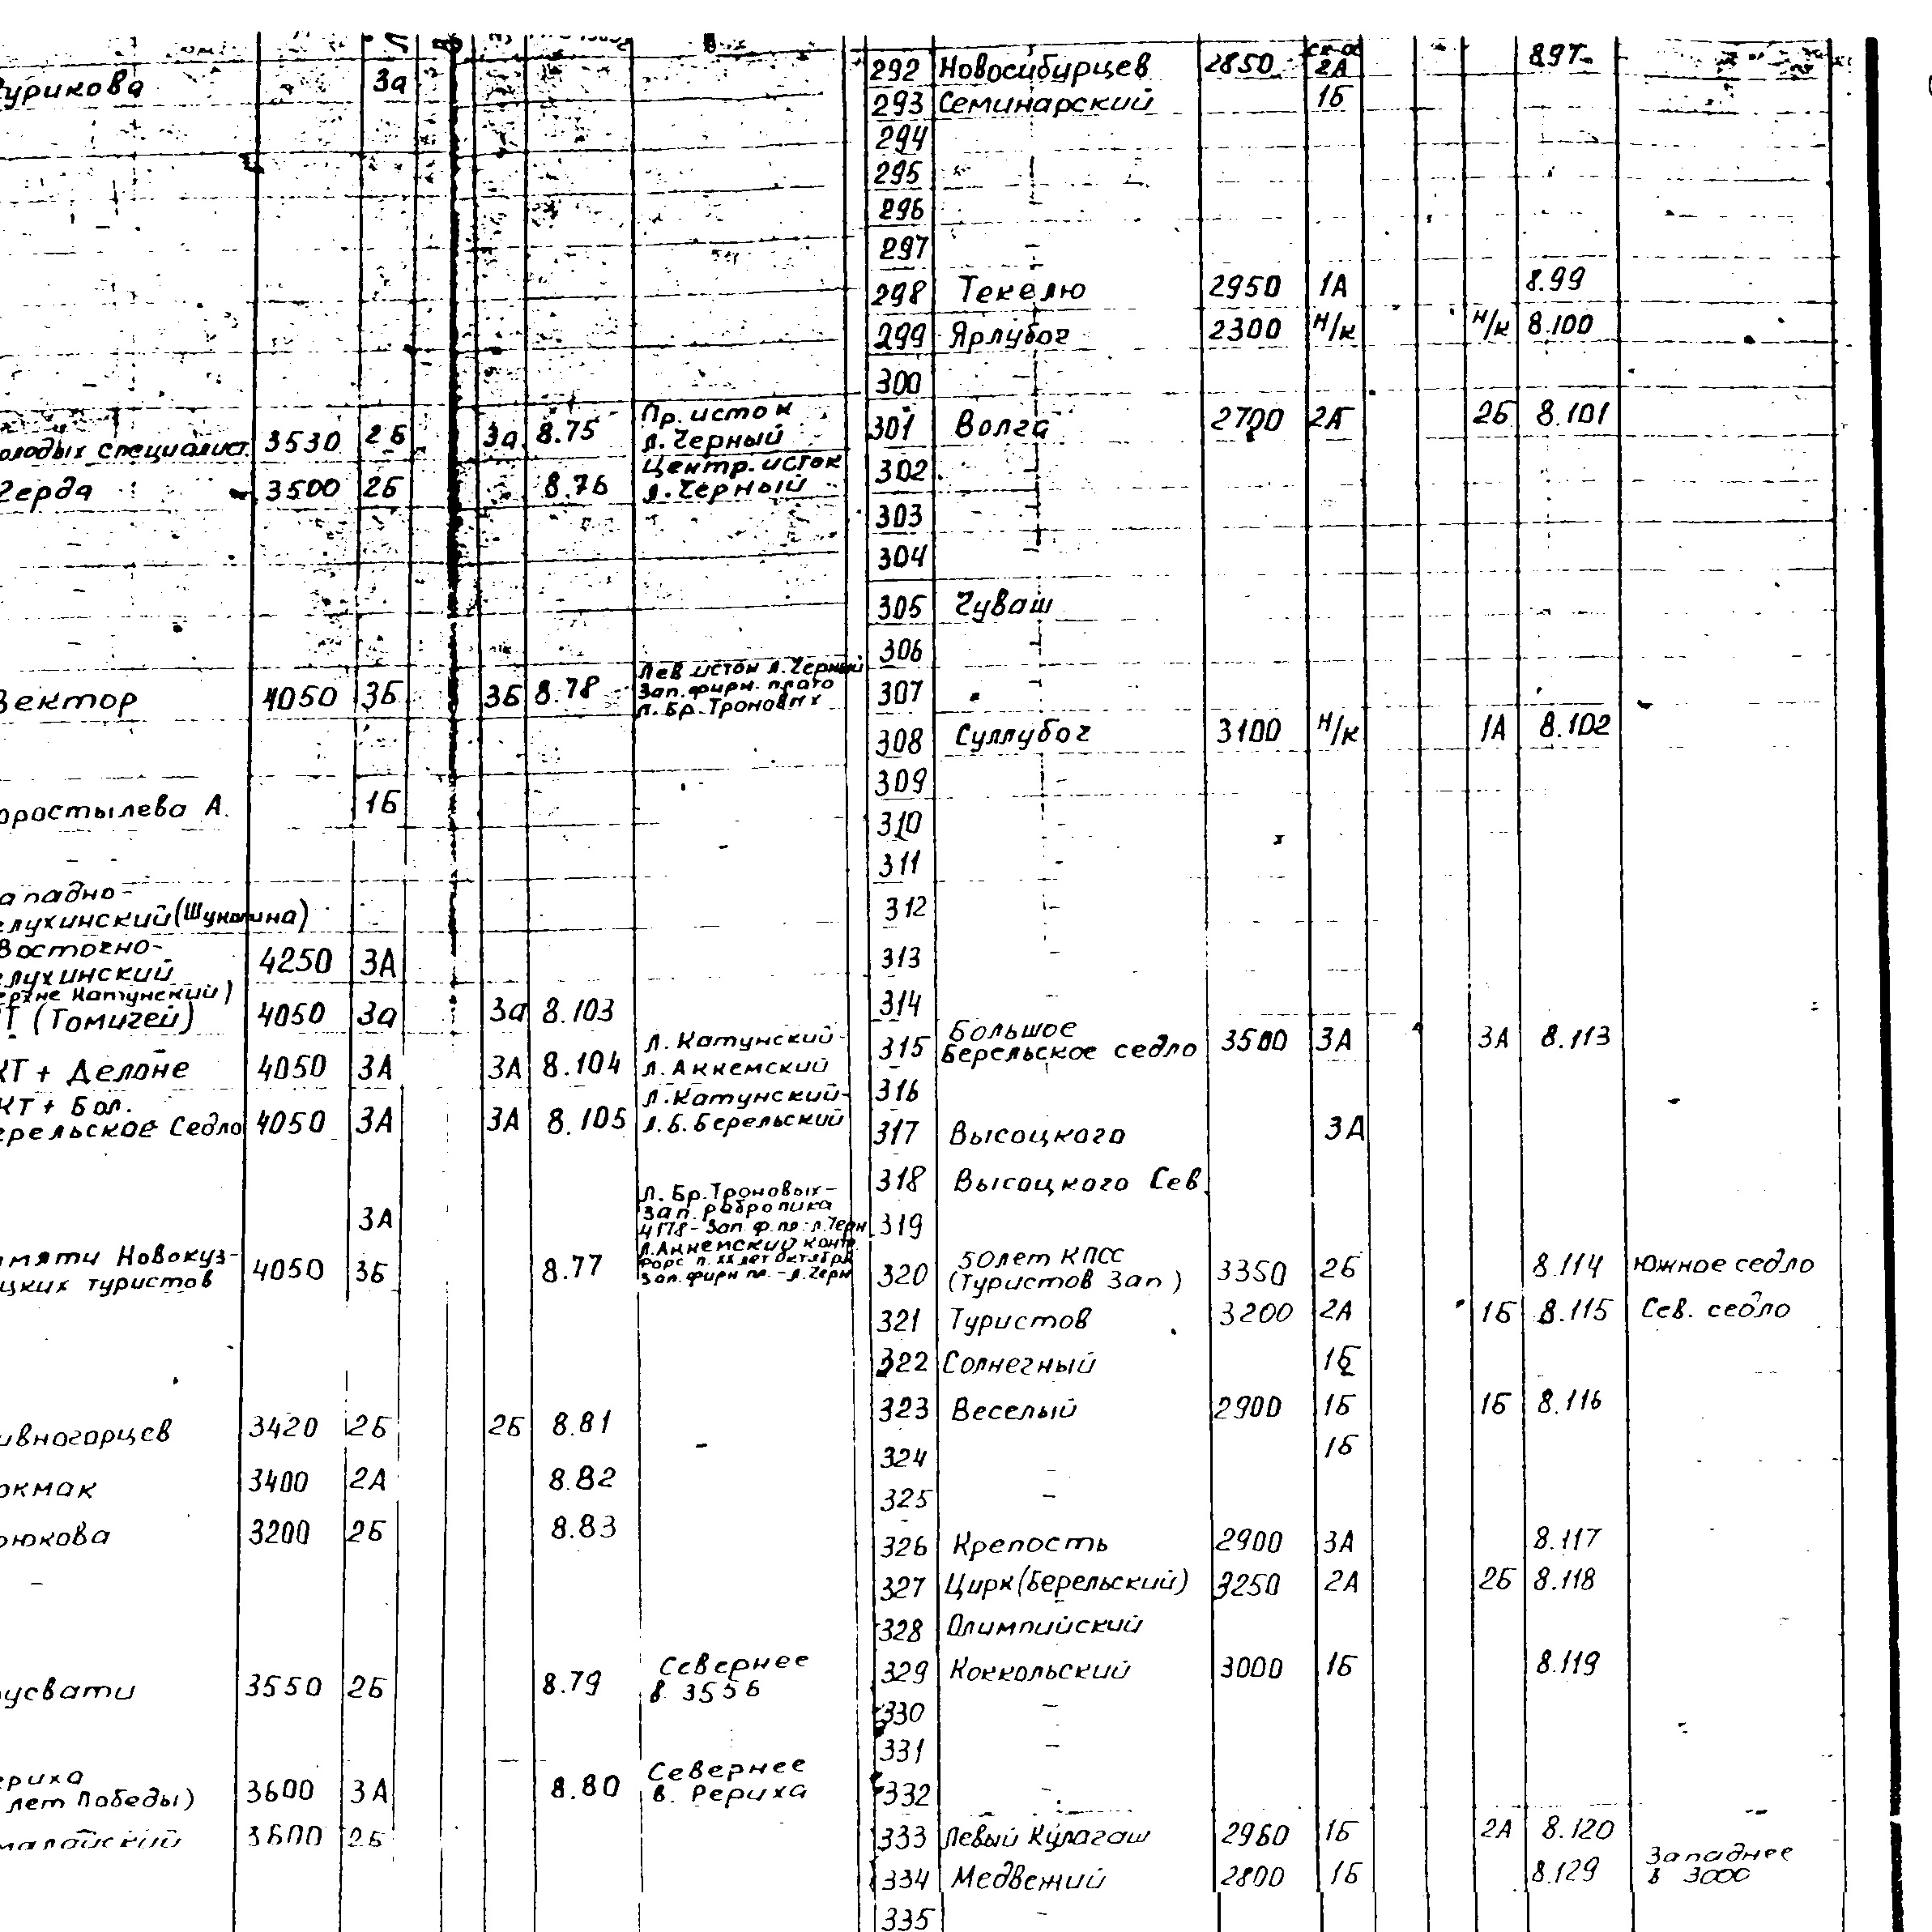 Сурикова 3а
олодых специалист. 3530 2Б 3а 8.75 Пр. исток
л. Черный
Герда 3500 2Б 8.76 Центр. исток
л. Черный
Вектор 4050 3Б 3Б 8.78 Лев исток л. Черный
Зап. фирн. плато
л. Бр. Троновых
оростылева А. 1Б
ападно-
елухинский (Шукшина)
Восточно-
елухинский 4250 3А
ерхне Катунский)
Т (Томичей) 4050 3а 3а 8.103
КТ + Делоне 4050 3А 3А 8.104 Л. Катунский-
л. Аккемский
КТ + Бол.
ерельское Седло 4050 3А 3А 8.105 Л. Катунский-
л. Б. Берельский
3А Л. Бр. Троновых-
Зап.
4178 - Зап. ф. пл - л. Черн
амяти Новокуз-
цких туристов 4050 3Б 8.77 Л. Аккемский контр
форс п. ХХ лет Октября
Зап. фирн пл. - л. Черн
ивногорцев 3420 2Б 2Б 8.81
окмак 3400 2А 8.82
рюкова 3200 2Б 8.83
русвати 3550 2Б 8.79 Севернее
в. 3556
ериха
лет Победы) 3600 3А 8.80 Севернее
в. Рериха
малайский 3600 2Б
292 Новосибирцев 2850 2А 8.97
293 Семинарский 1Б
294
295
296
297 -
298 Текелю 2950 1А 8.99
299 Ярлубоч 2300 н/к н/к 8.100
300 -
301 Волга 2700 2А 2Б 8.101
302 -
303 -
304 -
305 Чуваш
306 -
307
308 Суллубоч 3100 н/к 1А 8.102
309 -
310 -
311 -
312 -
313 -
314 -
315 Большое
Берельское седло 3500 3А 3А 8.113
316
317 Высоцкого 3А
318 Высоцкого Сев.
319
320 50 лет КПСС
(Туристов Зап) 3350 2Б 8.114 Южное седло
321 Туристов 3200 2А 1Б 8.115 Сев. седло
322 Солнечный 1Б
323 Веселый 2900 1Б 1Б 8.116
324 1Б
325 -
326 Крепость 2900 3А 8.117
327 Цирк (Берельский) 3250 2А 2Б 8.118
328 Олимпийский
329 Коккольский 3000 1Б 8.119
330 -
331 -
332 -
333 Левый Кулагаш 2960 1Б 2А 8.120
334 Медвежий 2800 1Б 8.129 Западнее
в 3000
335 -